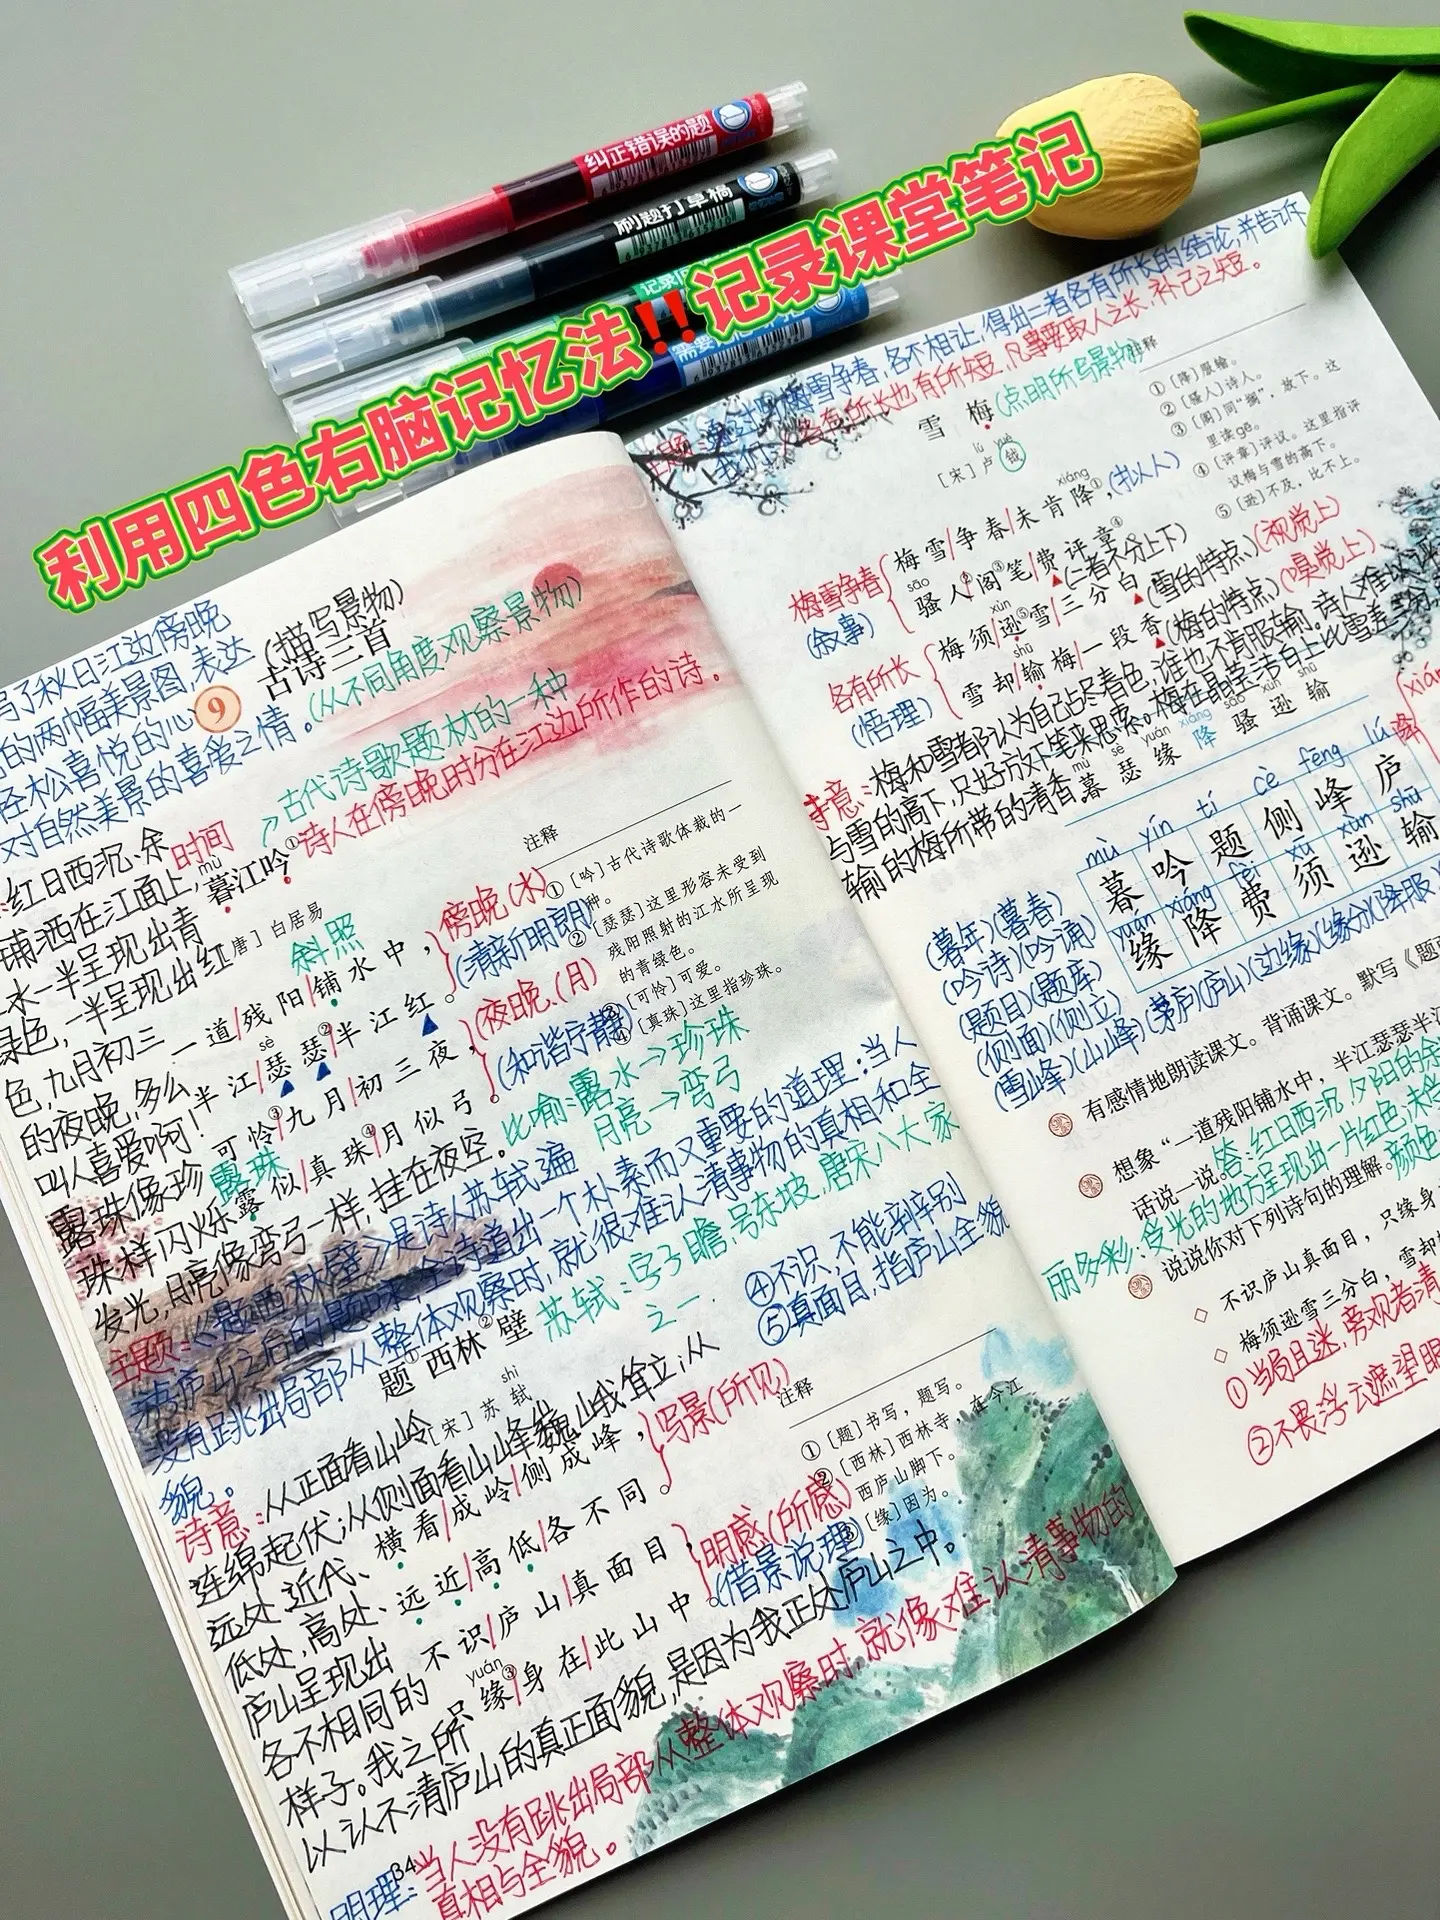 利用四色右脑记忆法!!记录课堂笔记
纠正错误的题
刷题打草稿
写了秋日江边傍晚
的两幅美景图,表达
轻松喜悦的心
对自然美景的喜爱之情。
(描写景物)
9
古诗三首
(从不同角度观察景物)
古代诗歌题材的一种
诗人在傍晚时分在江边所作的诗。
时间
mù
暮江吟①
[唐]白居易
斜照
一道残阳铺水中,
sè
半江瑟瑟②半江红。
可怜③九月初三夜,
露珠
露似真珠④月似弓。
傍晚(水)
(清新明朗)
夜晚(月)
(和谐宁静)
注释
①[吟]古代诗歌体裁的一
种。
②[瑟瑟]这里形容未受到
残阳照射的江水所呈现
的青绿色。
③[可怜]可爱。
④[真珠]这里指珍珠。
红日西沉,余
铺洒在江面上,
水一半呈现出青
绿色,一半呈现出红
色,九月初三
的夜晚,多么
叫人喜爱啊!
露珠像珍
珠样闪烁
发光,月亮像弯弓一样,挂在夜空。
比喻:露水→珍珠
月亮→弯弓
主题:《题西林壁》是诗人苏轼遍
游庐山之后的题咏,全诗道出一个朴素而又重要的道理:当人
没有跳出局部从整体观察时,就很难认清事物的真相和全
貌。
苏轼:字子瞻,号东坡,唐宋八大家
之一.
④不识,不能辨别
⑤真面目,指庐山全貌
题①西林②壁
shì
[宋]苏轼
横看成岭侧成峰,
远近高低各不同。
不识庐山真面目,
yuán
只缘③身在此山中。
写景(所见)
明感(所感)
(借景说理)
注释
①[题]书写,题写。
②[西林]西林寺,在今江
西庐山脚下。
③[缘]因为。
诗意:从正面看山岭
连绵起伏;从侧面看山峰巍峨耸立;从
远处、近代、
低处,高处、
庐山呈现出
各不相同的
样子。我之所
以认不清庐山的真正面貌,是因为我正处庐山之中。
明理:当人没有跳出局部从整体观察时,就像难认清事物的
真相与全貌。
34
各不相让,得出二者各有所长的结论,并告诉
各有所长也有所短,凡事要取人之长,补己之短。
雪梅
(点明所写景物)
lú yuè
[宋]卢钺
xiáng
梅雪争春未肯降①,
(拟人)
sāo
骚人②阁③笔费评章④
(二者不分上下)
xùn
梅须逊⑤雪三分白,
(雪的特点)
(视觉上)
shū
雪却输梅一段香
(梅的特点)
(嗅觉上)
梅雪争春
(叙事)
各有所长
(悟理)
注释
①[降]服输。
②[骚人]诗人。
③[阁]同“搁”,放下。这
里读gē。
④[评章]评议。这里指评
议梅与雪的高下。
⑤[逊]不及,比不上。
诗意:梅和雪都认为自己占尽春色,谁也不肯服输。诗人难以评
与雪的高下,只好放下笔来思索。梅在晶莹洁白上比雪差
输的梅所带的清香。
mù sè yuán xiáng sāo xùn shū
暮瑟缘降骚逊输
mù yín tí cè fēng lú
暮吟题侧峰庐
yuán xiáng fèi xū xùn shū
缘降费须逊输
(暮年)(暮春)
(吟诗)(吟诵)
(题目)(题库)
(侧面)(侧立)
(雪峰)(山峰)(茅庐)(庐山)(边缘)(缘分)(降服)
有感情地朗读课文。背诵课文。默写《题西
想象“一道残阳铺水中,半江瑟瑟半江
话说一说。
答:红日西沉,夕阳的余
受光的地方呈现出一片红色,未
丽多彩:
颜色
说说你对下列诗句的理解。
不识庐山真面目,只缘身
梅须逊雪三分白,雪却
①当局且迷,旁观者清
②不畏浮云遮望眼